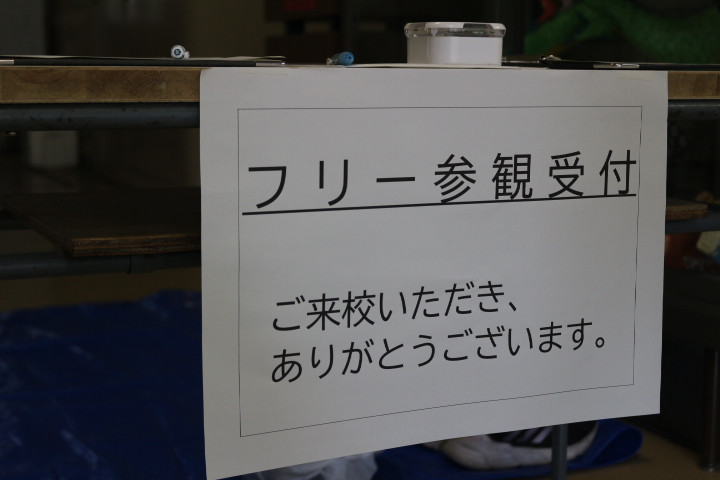 フリー参観受付
ご来校いただき、
ありがとうございます。